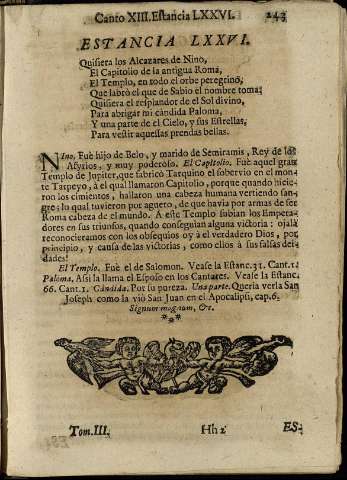 Canto XIII. Estancia LXXVI. 243
ESTANCIA LXXVI.
Quisiera los Alcazares de Nino,
El Capitolio de la antigua Roma,
El Templo, en todo el orbe peregrino,
Que labrò el que de Sabio el nombre toma;
Quisiera el resplandor de el Sol divino,
Para abrigar mi cándida Paloma,
Y una parte de el Cielo, y sus Estrellas,
Para vestir aquestas prendas bellas.
NIno. Fuè hijo de Belo, y marido de Semiramis, Rey de los
Assyrios, y muy poderoso. El Capitolio. Fuè aquel gran
Templo de Jupiter, que fabricò Tarquino el sobervio en el mon-
te Tarpeyo, à el qual llamaron Capitolio, porque quando hicie-
ron los cimientos, hallaron una cabeza humana vertiendo san-
gre; lo qual tuvieron por aguero, de que havia por armas de ser
Roma cabeza de el mundo. A este Templo subian los Empera-
dores en sus triunfos, quando conseguian alguna victoria: ojalà
reconocieramos con los obsequios oy à el verdadero Dios, por
principio, y causa de las victorias, como ellos à sus falsas dei-
dades!
El Templo. Fuè el de Salomon. Vease la Estanc. 31. Cant. 1.
Paloma. Assi la llama el Esposo en los Cantares. Vease la Estanc.
66. Cant. 1. Cándida. Por su pureza. Una parte. Queria verla San
Joseph como la viò San Juan en el Apocalipsi, cap. 6.
Signum magnum, &c.
Tom. III. Hh 2 ES-